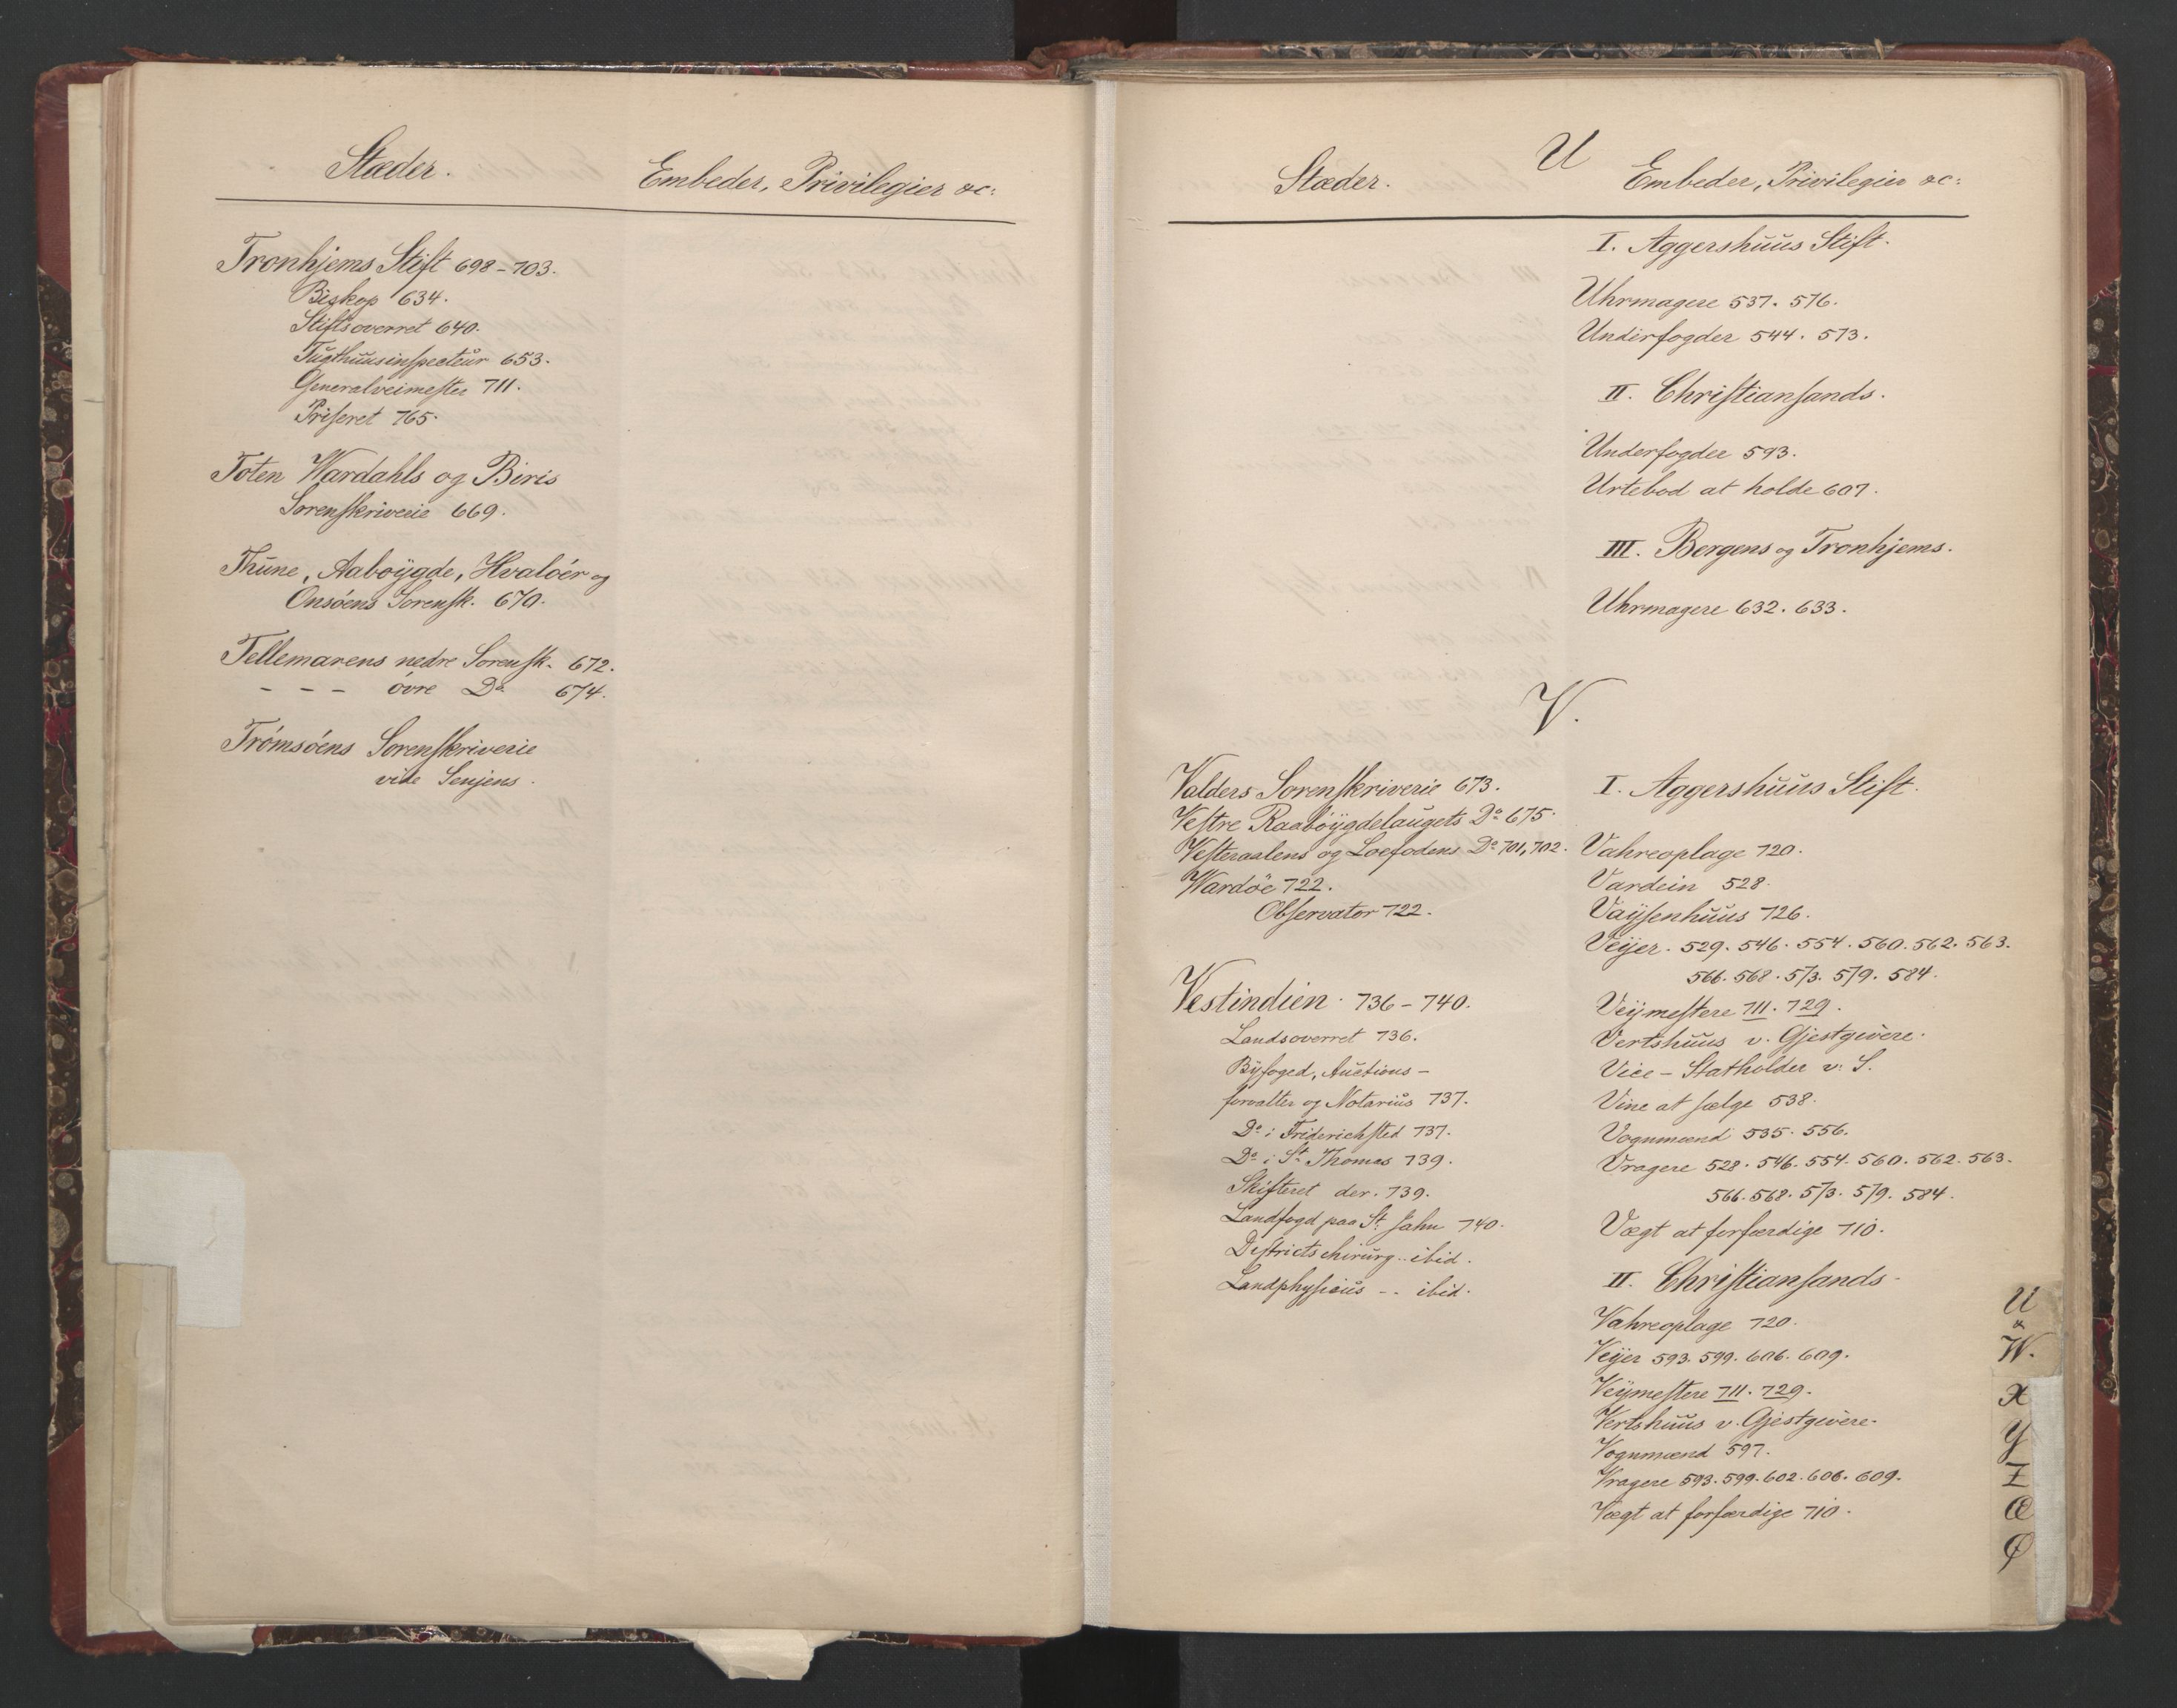 Stæder.
Embeder, Privilegier &c:
Tronhjems Stift 698-703.
Biskop 634.
Stiftsoverret 640.
Tugthuusinspecteur 653.
Generalveimester 711.
Priseret 765.
Toten Wardahls og Biris
Sorenskriverie 669.
Thune, Aabøygde, Hvaløer og
Onsøens Sorensk. 670.
Tellemarens nedre Sorensk. 672.
- - - øvre Do 674.
Trømsøens Sorenskriverie
vide Senjens.
U
Stæder.
Embeder, Privilegier &c:
I. Aggershuus Stift.
Uhrmagere 537. 576.
Underfogder 544. 573.
II. Christiansands.
Underfogder 593.
Urtebod at holde 607.
III. Bergens og Tronhjems.
Uhrmagere 632. 633.
V.
Valders Sorenskriverie 673.
Vestre Raabøygdelaugets Do 675.
Vesteraalens og Loefodens Do 701, 702.
Wardöe 722.
Observator 722.
Vestindien. 736-740.
Landsoverret 736.
Byfoged, Auctions-
forvalter og Notarius 737.
Do i Friderichsted 737.
Do i St Thomas 739.
Skifteret der. 739.
Landfogd paa St Jahn 740.
Districtschirurg.. ibid.
Landphysicus -- ibid.
I. Aggershuus Stift.
Vahreoplage 720.
Vardein 528.
Vaysenhuus 726.
Veyer. 529. 546. 554. 560. 562. 563.
566. 568. 573. 579. 584.
Veymestere 711. 729.
Vertshuus v. Gjestgivere.
Vice-Statholder v: S.
Vine at sælge 538.
Vognmænd 535. 556.
Vragere 528. 546. 554. 560. 562. 563.
566. 568. 573. 579. 584.
Vægt at forfærdige 710.
II. Christiansands.
Vahreoplage 720.
Veyer 593. 599. 606. 609.
Veymestere 711. 729.
Vertshuus v. Gjestgivere.
Vognmænd 597.
Vragere 593. 599. 602. 606. 609.
Vægt at forfærdige 710.
U
&
W.
X
Y
Z
Æ
Ø